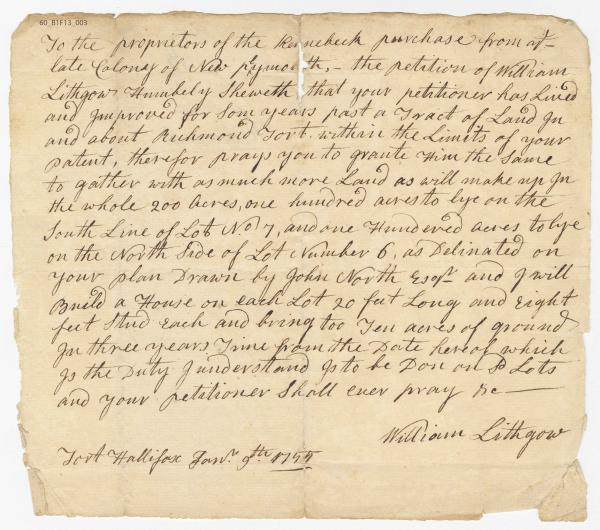 60_B1F13_003
To the proprietors of the Kennebeck purchase from ye
late Colony of New plymouth, - the petition of William
Lithgow Humbely Sheweth that your petitioner has Lived
and Improved for Som years past a Tract of Land In
and about Richmond Fort within the Limits of your
patent, therefor prays you to grante Him the Same
to gather with as much more Land as will make up In
the whole 200 Acres, one hundred acres to lye on the
South Line of Lot No 7, and one Hundered acres to lye
on the North Side of Lot Number 6, as Delinated on
your plan Drawn by John North Esqr. and I will
Bueld a House on each Lot 20 feet Long and Eight
feet Stud Each and bring too Ten acres of ground
In three years Time from the Date hereof which
Is the Duty I understand Is to be Don on Sd Lots
and your petitioner Shall ever pray &c
William Lithgow
Fort Hallifax Janr. 9th